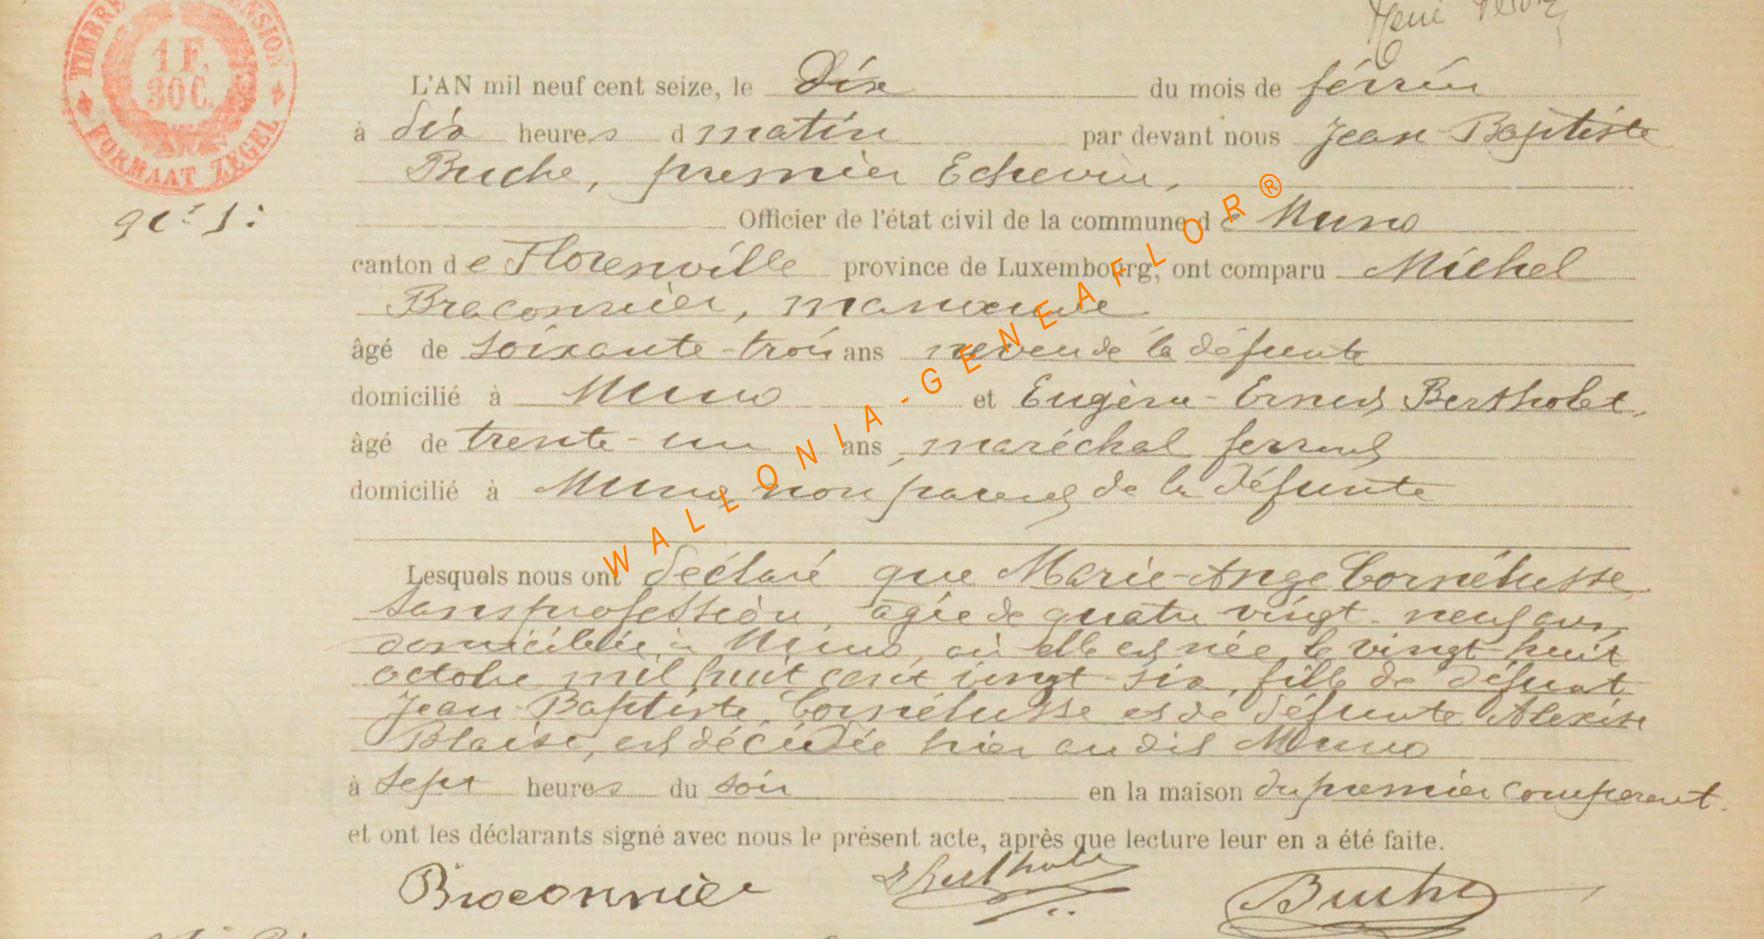 TIMBRE DIMENSION
1 F.
30 C.
FORMAAT ZEGEL
L'AN mil neuf cent seize, le Dix du mois de février
à dix heures d matin par devant nous Jean Baptiste
Buche, premier Echevin,
Nº 1:
Officier de l'état civil de la commune de Muno
canton de Florenville province de Luxembourg, ont comparu Michel
Braconnier, manoeuvre
âgé de soixante-trois ans neveu de la défunte
domicilié à Muno et Eugène-Ernest Bertholet,
âgé de trente-un ans, maréchal ferrant
domicilié à Muno, non parent de la défunte
Lesquels nous ont déclaré que Marie-Ange Cornélusse
sans profession, agée de quatre vingt-neuf ans,
domiciliée à Muno, où elle est née le vingt-huit
octobre mil huit cent vingt-six, fille de défunt
Jean-Baptiste Cornélusse et de défunte Alexise
Blaise, est décédée hier au dit Muno
à sept heures du soir en la maison du premier comparant.
et ont les déclarants signé avec nous le présent acte, après que lecture leur en a été faite.
Braconnier EBertholet Buche
WALLONIA-GENEAFLOR®